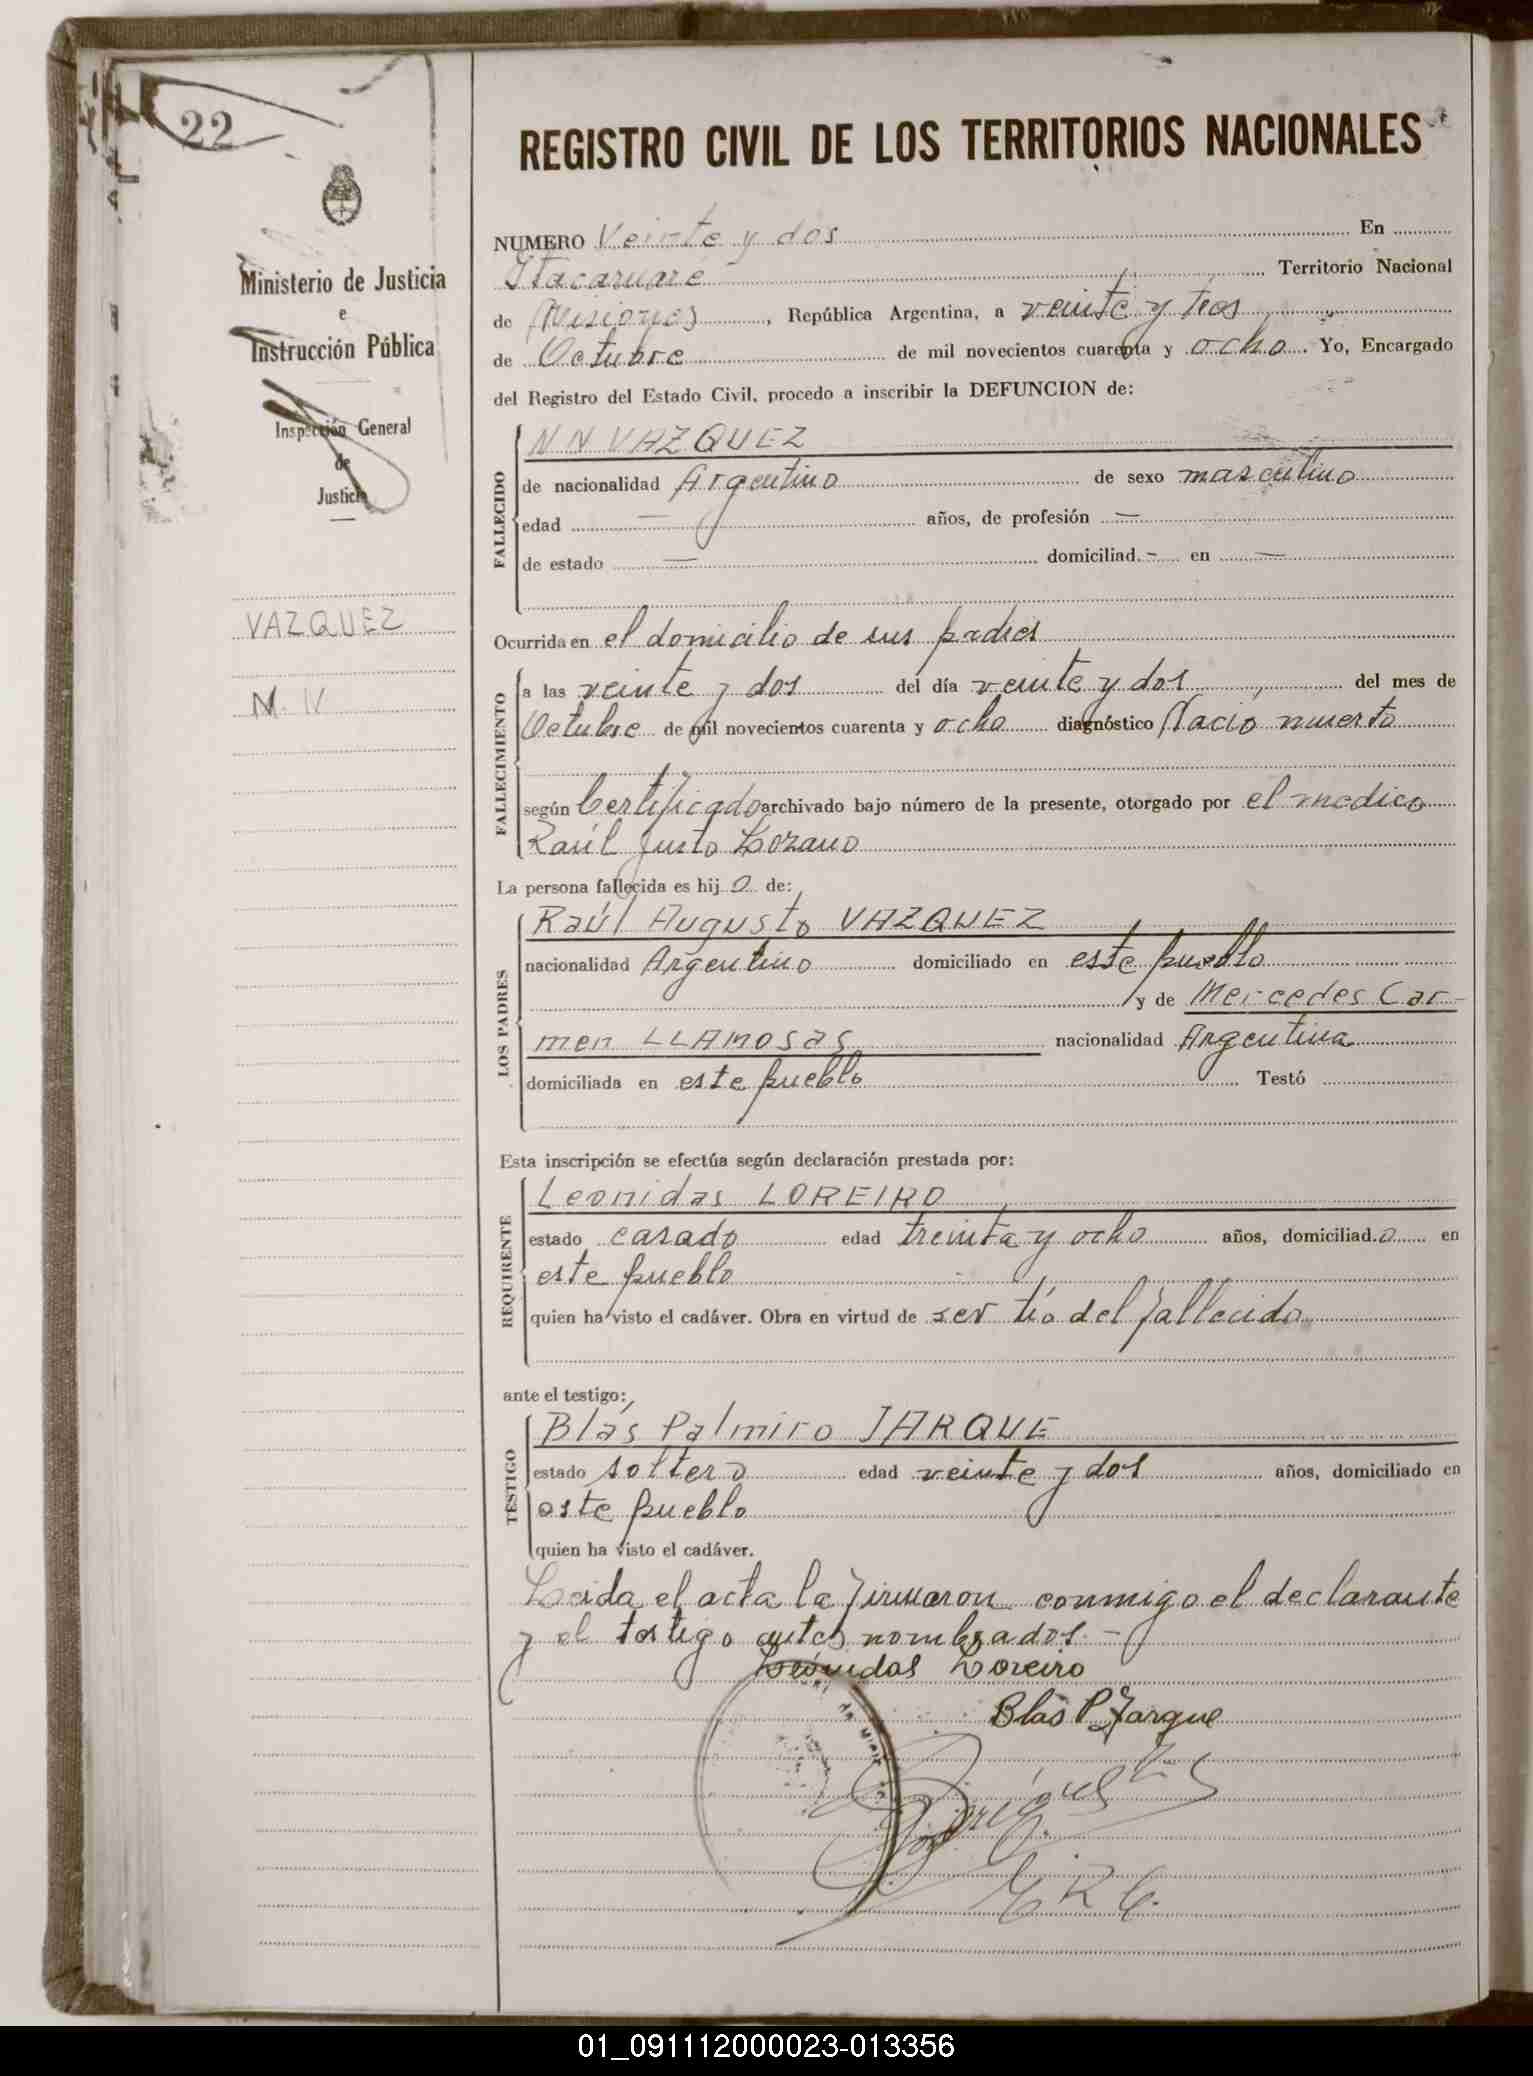 22
Ministerio de Justicia
e
Instrucción Pública
Inspección General
de
Justicia
VAZQUEZ
N. N
REGISTRO CIVIL DE LOS TERRITORIOS NACIONALES
NUMERO Veinte y dos En
Itacaruaré Territorio Nacional
de Misiones, República Argentina, a veinte y tres
de Octubre de mil novecientos cuarenta y ocho. Yo, Encargado
del Registro del Estado Civil, procedo a inscribir la DEFUNCION de:
FALLECIDO
N N VAZQUEZ
de nacionalidad Argentino de sexo masculino
edad — años, de profesión —
de estado — domiciliad. - en —
Ocurrida en el domicilio de sus padres
FALLECIMIENTO
a las veinte y dos del día veinte y dos del mes de
Octubre de mil novecientos cuarenta y ocho diagnóstico Nació muerto
según Certificado archivado bajo número de la presente, otorgado por el medico
Raúl Justo Lozano
La persona fallecida es hij o de:
LOS PADRES
Raúl Augusto VAZQUEZ
nacionalidad Argentino domiciliado en este pueblo
y de Mercedes Car-
men LLAMOSAS nacionalidad Argentina
domiciliada en este pueblo Testó
Esta inscripción se efectúa según declaración prestada por:
REQUIRENTE
Leonidas LOREIRO
estado casado edad treinta y ocho años, domiciliad.o en
este pueblo
quien ha visto el cadáver. Obra en virtud de ser tío del fallecido
ante el testigo:
TESTIGO
Blás Palmiro JARQUE
estado soltero edad veinte y dos años, domiciliado en
este pueblo
quien ha visto el cadáver.
Leida el acta la firmaron conmigo el declarante
y el testigo antes nombrados. -
Leónidas Loreiro
Blás P. Jarque
E R C.
01_091112000023-013356